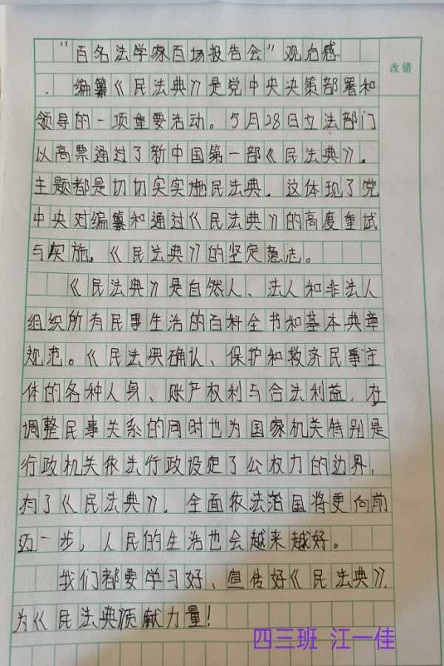 改错
“百名法学家百场报告会”观后感
编纂《民法典》是党中央决策部署和
领导的一项重要活动。5月28日立法部门
以高票通过了新中国第一部《民法典》。
主题都是切切实实施民法典。这体现了党
中央对编纂和通过《民法典》的高度重试
与实施。《民法典》的坚定意志。
《民法典》是自然人、法人和非法人
组织所有民事生活的百科全书和基本典章
规范。《民法典确认、保护和救济民事主
体的各种人身、财产权利与合法利益，在
调整民事关系的同时也为国家机关特别是
行政机关依法行政设定了公权力的边界，
有了《民法典》，全面依法治国将更向前
迈一步，人民的生活也会越来越好。
我们都要学习好、宣传好《民法典》，
为《民法典贡献力量！
四三班 江一佳